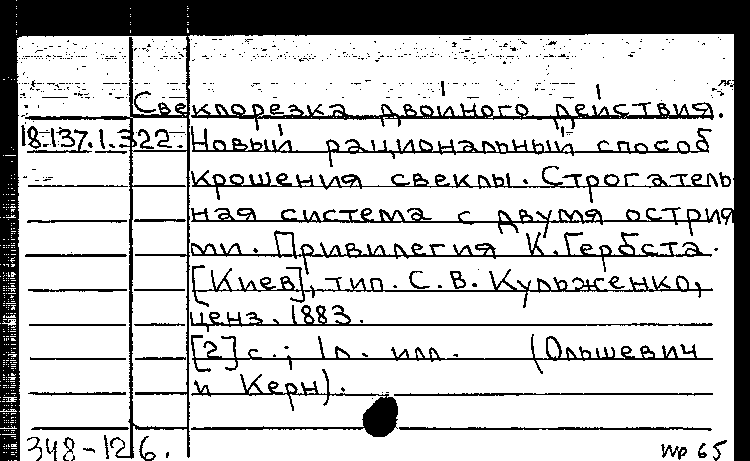 Свеклорезка двойного действия.
18.137.1.322. Новый рациональный способ
крошения свеклы. Строгатель-
ная система с двумя острия
ми. Привилегия К. Гербста.
[Киев], тип. С. В. Кульженко,
ценз. 1883.
[2] с.; 1 л. илл. (Ольшевич
и Керн).
348-126. мр 65